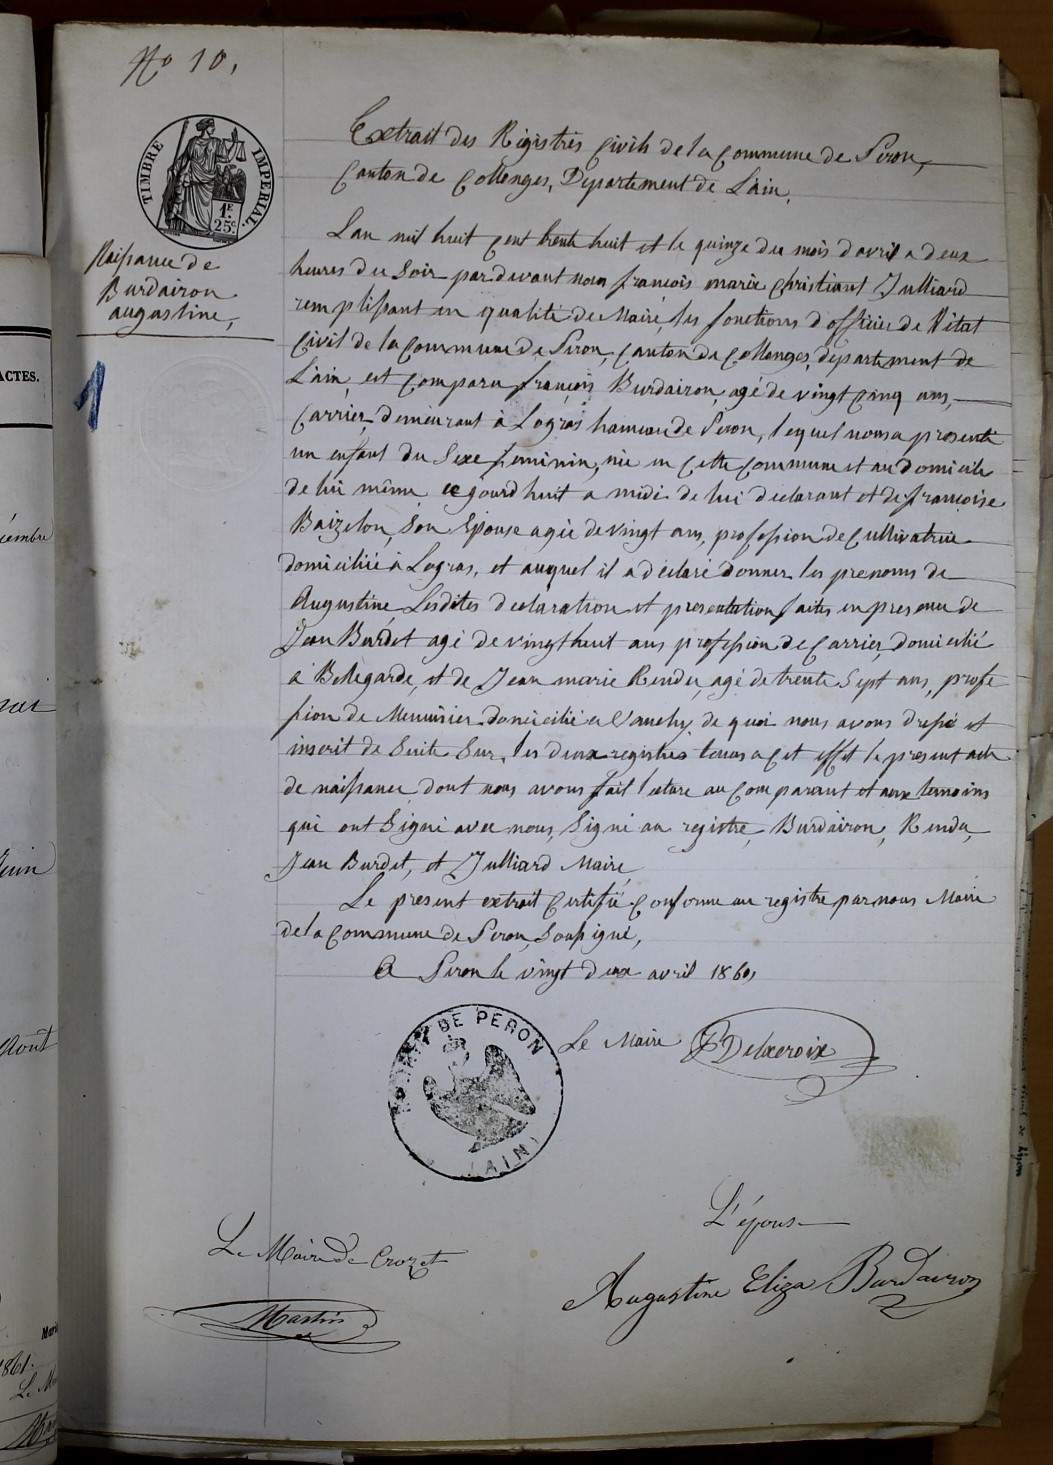 No 10,
TIMBRE IMPERIAL.
1F.
25c.
Naissance de
Burdairon
augustine,
1
Extrait des Régistres Civils de la Commune de Peron,
Canton de Collonges, Département de L'ain,
Lan mil huit cent trente huit et le quinze du mois d'avril a deux
heures du soir par devant nous françois marie Christiant Julliard
remplissant en qualité de Maire, les fonctions d'officier de l'état
Civil de la Commune de Peron, Canton de Collonges, departement de
L'ain, est comparu françois Burdairon, agé de vingt cinq ans,
Carrier, demeurant à Logras hameau de Peron, lequel nous a presenté
un enfant du Sexe feminin, née en Cette Commune et au domicile
de lui même ce jourd huit a midi de lui declarant et de françoise
Baizelon, Son Epouse agée de vingt ans, profession de Cultivatrice
domiciliée à Logras, et auquel il a déclaré donner les prenoms de
Augustine, Lesdites declaration et presentation faites en presence de
Jean Burdet agé de vingt huit ans profession de Carrier, domicilié
à Bellegarde, et de Jean marie Rendu, agé de trente Sept ans, profe
ssion de Menuisier domicilié a de quoi nous avons dressé et
inscrit de Suite Sur les deux registres tenus a cet effet le present acte
de naissance dont nous avons fait lecture au Comparant et aux temoins
qui ont Signé avec nous, Signé au registre, Burdairon, Rendu,
Jean Burdet, et Julliard Maire
Le présent extrait Certifié Conforme au registre par nous Maire
de la Commune de Peron, Soussigné,
A Peron le vingt deux avril 1861
Le Maire Delacroix
MAIRIE DE PERON
(AIN)
L'épouse
Le Maire de Crozet
Augustine Eliza Burdairon
Martin
ACTES.
Août
1861.